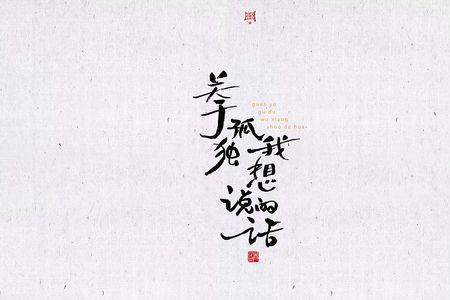 关于
孤独
我想
说的话
guan yu
gu du
wo xiang
shuo de hua